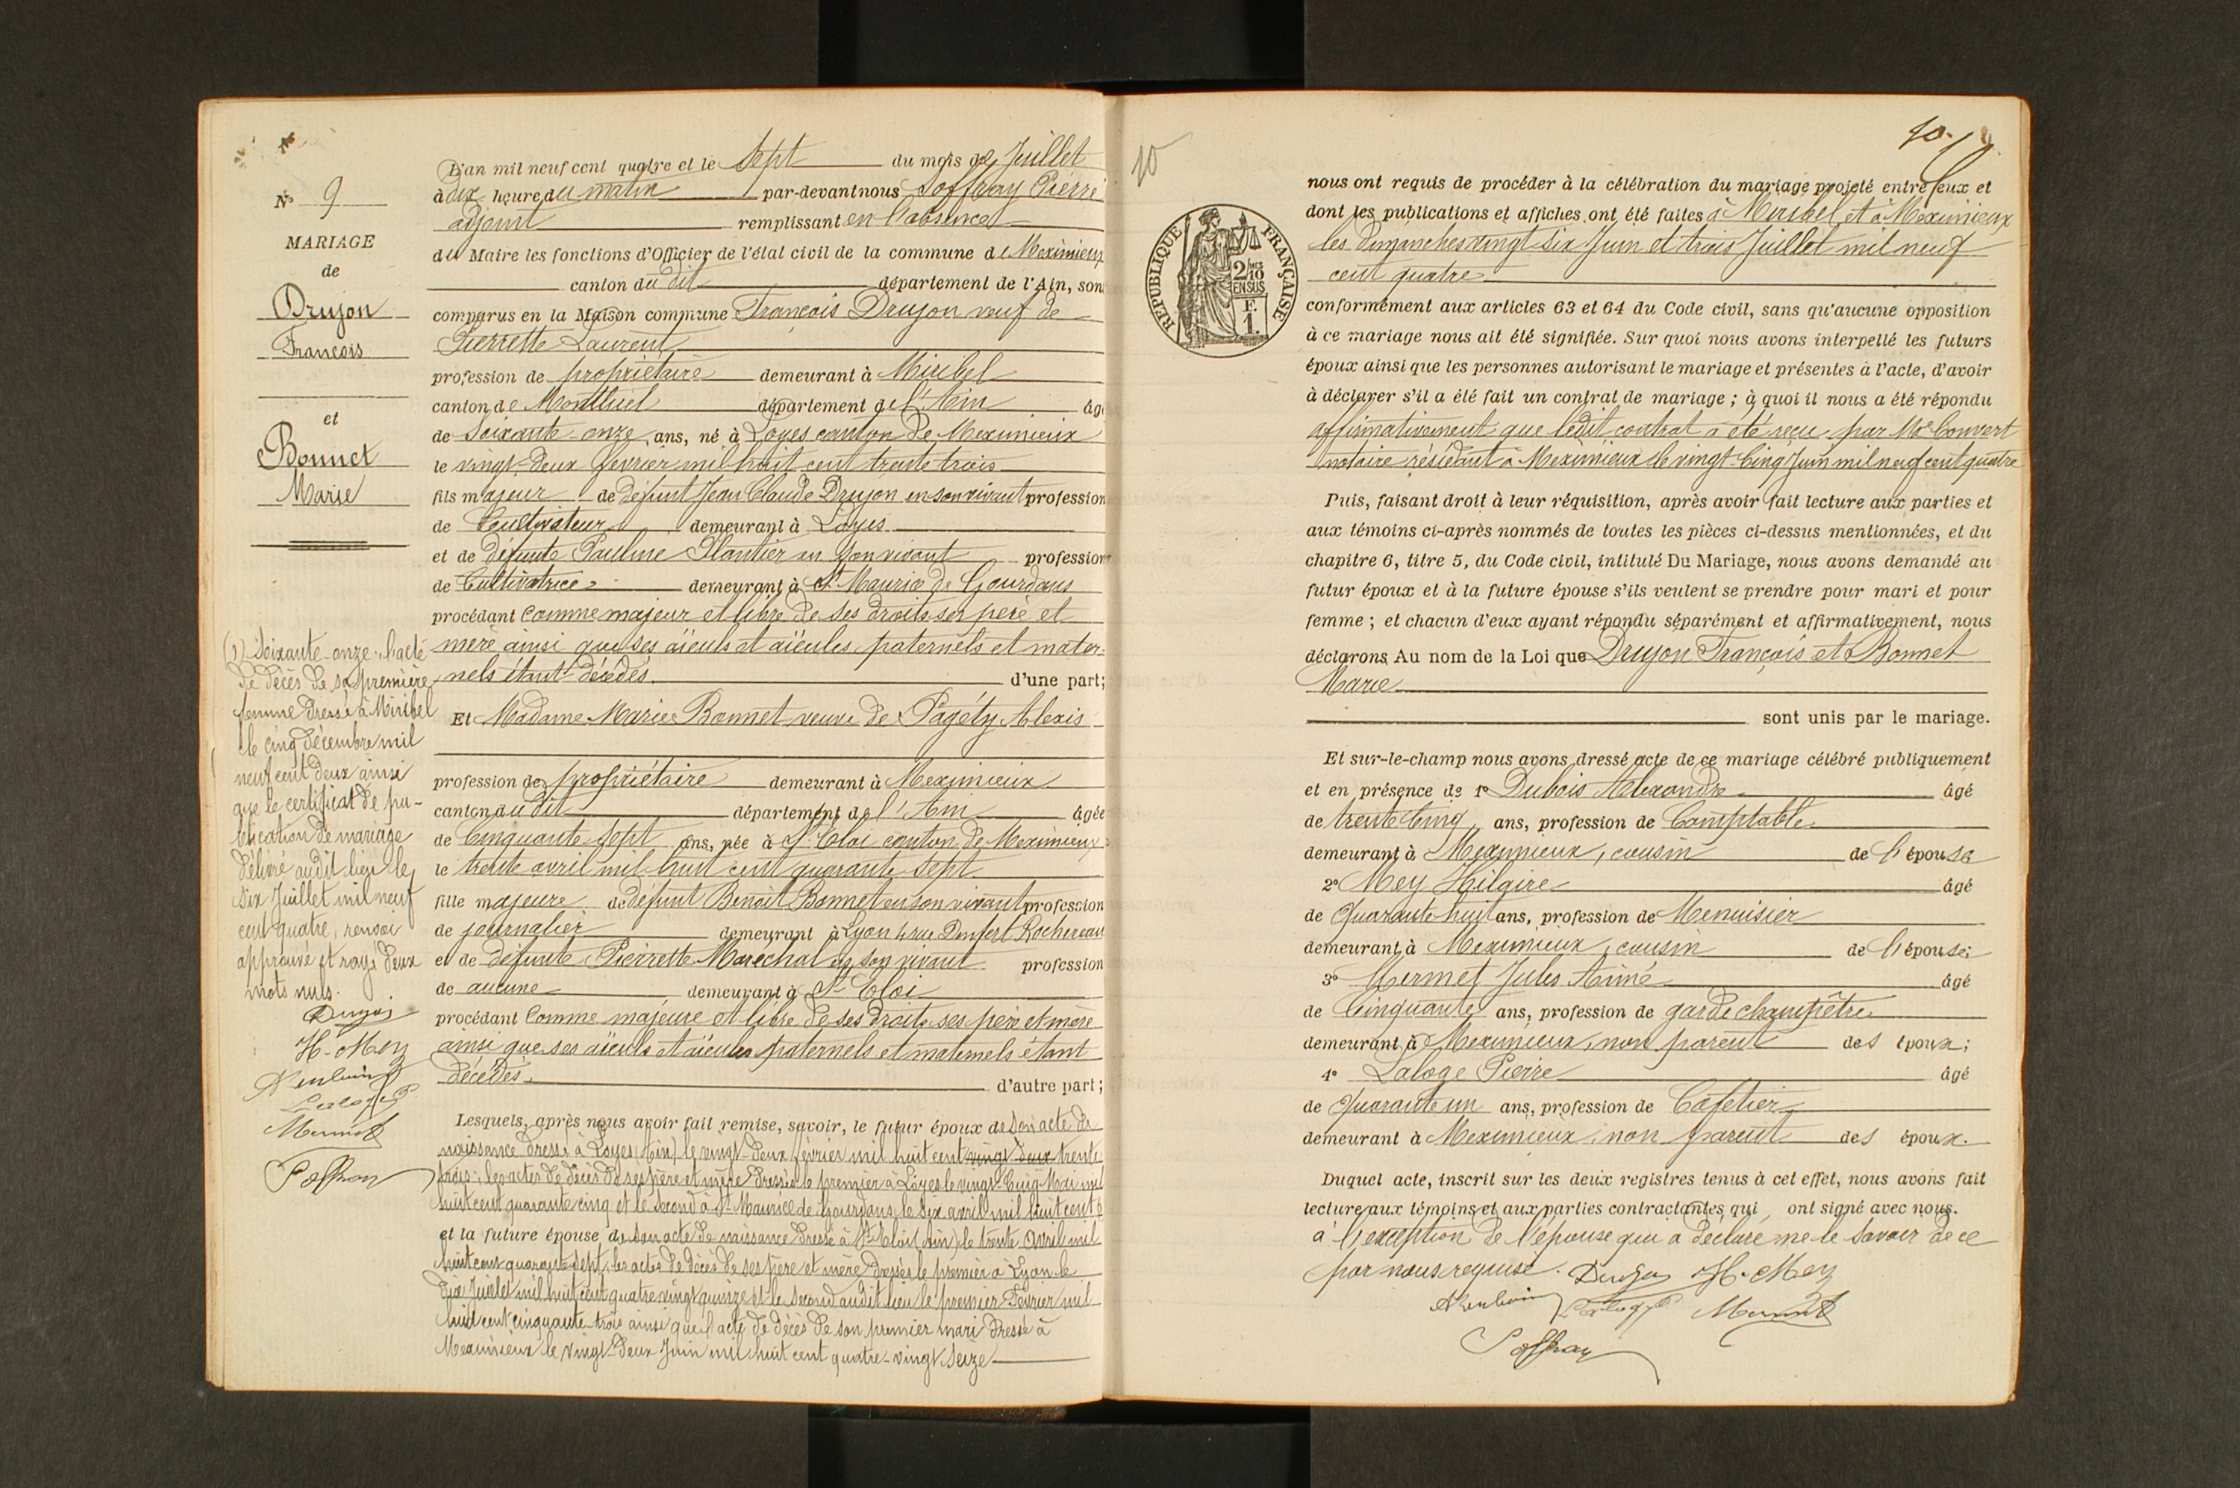 N° 9
MARIAGE
de
Drujon
François
et
Bonnet
Marie
L'an mil neuf cent quatre et le sept du mois de Juillet
à dix heure du matin par-devant nous Soffray Pierre
adjoint remplissant en l'absence
du Maire les fonctions d'Officier de l'état civil de la commune de Meximieux
canton du dit département de l'Ain, son
comparus en la Maison commune François Drujon veuf de
Pierrette Laurent
profession de propriétaire demeurant à Miribel
canton de Montluel département de l'Ain âg
de Soixante-onze ans, né à Loyes canton de Meximieux
le vingt-deux février mil huit cent trente trois
fils majeur de défunt Jean Claude Drujon en son vivant profession
de Cultivateur demeurant à Loyes
et de défunte Pauline Plantier en son vivant profession
de Cultivatrice demeurant à St Maurice de Gourdans
procédant comme majeur et libre de ses droits ses père et
mère ainsi que ses aïeuls et aïeules paternels et mater-
nels étant décédés d'une part;
Et Madame Marie Bonnet veuve de Pagéty Alexis
profession de propriétaire demeurant à Meximieux
canton du dit département de l'Ain âgée
de Cinquante sept ans, née à St Eloi canton de Meximieux
le trente avril mil huit cent quarante sept
fille majeure de défunt Benoit Bonnet en son vivant profession
de journalier demeurant à Lyon 4 rue Denfert Rochereau
et de défunte Pierrette Maréchal en son vivant profession
de aucune demeurant à St Eloi
procédant Comme majeure et libre de ses droits ses père et mère
ainsi que ses aïeuls et aïeules paternels et maternels étant
décédés. d'autre part;
Lesquels, après nous avoir fait remise, savoir, le futur époux de son acte de
naissance dressé à Loyes (Ain) le vingt-deux février mil huit cent vingt deux trente
trois; les actes de décès de ses père et mère dressés le premier à Loyes le vingt cinq Mai mil
huit cent quarante cinq et le second à St Maurice de Gourdans le six avril mil huit cent
et la future épouse de son acte de naissance dressé à St Eloi (Ain) le trente avril mil
huit cent quarante sept, les actes de décès de ses père et mère dressés le premier à Lyon le
dix Juillet mil huit cent quatre vingt quinze et le second audit lieu le premier Février mil
huit cent cinquante-trois ainsi que l'acte de décès de son premier mari dressé à
Meximieux le vingt-deux Juin mil huit cent quatre-vingt seize
(1) Soixante-onze, l'acte
de décès de sa première
femme dressé à Miribel
le cinq décembre mil
neuf cent deux ainsi
que le certificat de pu-
blication de mariage
délivré audit lieu le
six Juillet mil neuf
cent quatre, renvoi
approuvé et rayé deux
mots nuls.
Drujon
H. Mey
Laloge P
Mermet
Soffray
10
10.
RÉPUBLIQUE FRANÇAISE
2/10 EN SUS
F. 1.
nous ont requis de procéder à la célébration du mariage projeté entre eux et
dont les publications et affiches ont été faites à Miribel et à Meximieux
les dimanches vingt-six Juin et trois Juillet mil neuf
cent quatre
conformément aux articles 63 et 64 du Code civil, sans qu'aucune opposition
à ce mariage nous ait été signifiée. Sur quoi nous avons interpellé les futurs
époux ainsi que les personnes autorisant le mariage et présentes à l'acte, d'avoir
à déclarer s'il a été fait un contrat de mariage ; à quoi il nous a été répondu
affirmativement que ledit contrat a été reçu par Me Convert
notaire résidant à Meximieux le vingt-Cinq Juin mil neuf cent quatre
Puis, faisant droit à leur réquisition, après avoir fait lecture aux parties et
aux témoins ci-après nommés de toutes les pièces ci-dessus mentionnées, et du
chapitre 6, titre 5, du Code civil, intitulé Du Mariage, nous avons demandé au
futur époux et à la future épouse s'ils veulent se prendre pour mari et pour
femme ; et chacun d'eux ayant répondu séparément et affirmativement, nous
déclarons Au nom de la Loi que Drujon François et Bonnet
Marie
sont unis par le mariage.
Et sur-le-champ nous avons dressé acte de ce mariage célébré publiquement
et en présence de 1° Dubois Alexandre âgé
de trente cinq ans, profession de Comptable
demeurant à Meximieux, cousin de l'épouse
2° Mey Hilaire âgé
de Quarante huit ans, profession de Menuisier
demeurant à Meximieux, cousin de l'épouse;
3° Mermet Jules Aimé âgé
de Cinquante ans, profession de garde champêtre
demeurant à Meximieux, non parent des époux;
4° Laloge Pierre âgé
de Quarante un ans, profession de Cafetier
demeurant à Meximieux, non parent des époux.
Duquel acte, inscrit sur les deux registres tenus à cet effet, nous avons fait
lecture aux témoins et aux parties contractantes qui ont signé avec nous.
à l'exception de l'épouse qui a déclaré ne le savoir de ce
par nous requise. Drujon H. Mey
Laloge P Mermet
Soffray